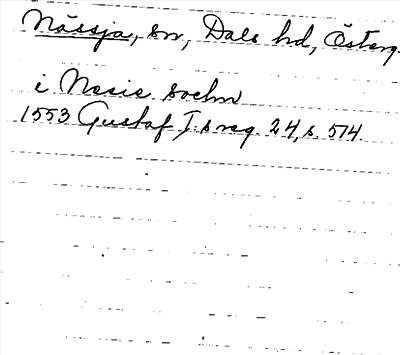 Nässja, sn, Dals hd, Österg.
i Nesie sochn
1553 Gustaf I:s reg. 24, s. 574.